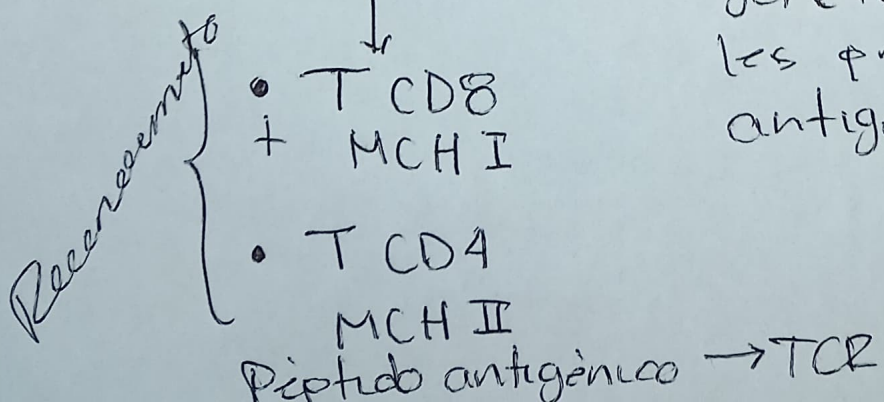 Reconocemito
• T CD8
+ MCH I
• T CD4
MCH II
Péptido antigénico → TCR
les
antig